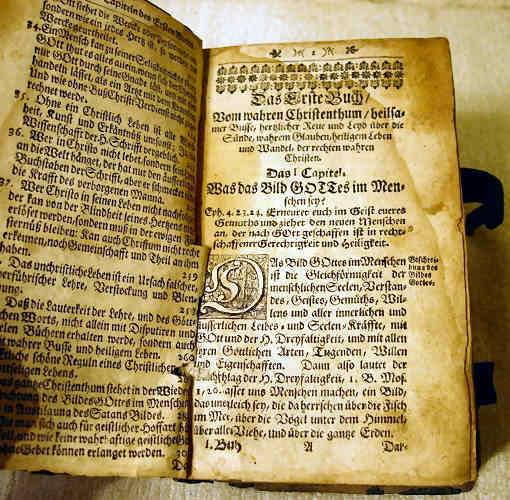 Capiteln des Ersten Buchs
GOtt siehet die Wercke ohne
sondern wie ein jedes Hertz ist, so werden
34. Ein Mensch kan zu seiner Seligkeit nichts
GOtt thut es alles allein, wenn sich der
nur GOtt durch seine Gnade mit ihm
handeln läst, als ein Artzt mit dem
Und wie ohne Buß Christi Verdienst nicht
rechnet werde.
35. Ohne ein Christlich Leben ist alle
heit, Kunst und Erkäntnüß umsonst,
Wissenschafft der H. Schrifft vergeblich
36. Wer in Christo nicht lebet, sondern sein Hertz
an die Welt hänget, der hat nur den äusserlichen
Buchstaben der Schrifft, aber er schmecket nicht
die Krafft des verborgenen Manna.
37. Wer Christo in seinen Leben nicht nachfolget
der kan von der Blindheit seines Hertzens nicht
erlöset werden, sondern muß in der ewigen
sternüß bleiben: Kan auch Christum nicht recht
erkennen, noch Gemeinschafft und Theil an ihm
haben. 219
Das unchristliche Leben ist ein Ursach falscher,
verführischer Lehre, Verstockung und Blen-
239
Daß die Lauterkeit der Lehre, und des Gött-
chen Worts, nicht allein mit Disputiren und
len Büchern erhalten werde, sondern auch
wahrer Busse und heiligen Leben.
Etliche schöne Regulen eines Christlichen 260
seligen Lebens.
Das gantze Christenthum stehet in der Wieder
richtung des Bildes GOttes im Menschen
in Austilgung des Satans Bildes.
man sich auch für geistlicher Hoffart
soll, und keine wahrhafftige geistliche
ohne Gebet können erlanget werden.
1
Das Erste Buch
Vom wahren Christenthum / heilsa-
mer Busse, hertzlicher Reue und Leyd über die
Sünde, wahrem Glauben, heiligem Leben
und Wandel, der rechten wahren
Christen.
Das I Capitel.
Was das Bild GOTTes im Men-
schen sey?
Eph. 4. 23. 24. Erneuret euch im Geist eueres
Gemüths und ziehet den neuen Menschen
an, der nach GOtt geschaffen ist in recht-
schaffener Gerechtigkeit und Heiligkeit.
DAs Bild GOttes im Menschen
ist die Gleichförmigkeit der
menschlichen Seelen, Verstan-
des, Geistes, Gemüths, Wil-
lens und aller innerlichen und
äusserlichen Leibes- und Seelen-Kräffte, mit
GOtt und der H. Dreyfaltigkeit, und mit allen
ihren Göttlichen Arten, Tugenden, Willen
und Eigenschafften. Dann also lautet der
Rathschlag der H. Dreyfaltigkeit, 1. B. Mos.
1, 26. Lasset uns Menschen machen, ein Bild,
das uns gleich sey, die da herrschen über die Fisch
im Meer, über die Vögel unter dem Himmel,
über alles Viehe, und über die gantze Erden.
Beschrei-
bung des
Bildes
Gottes.
I. Buch A Dar-